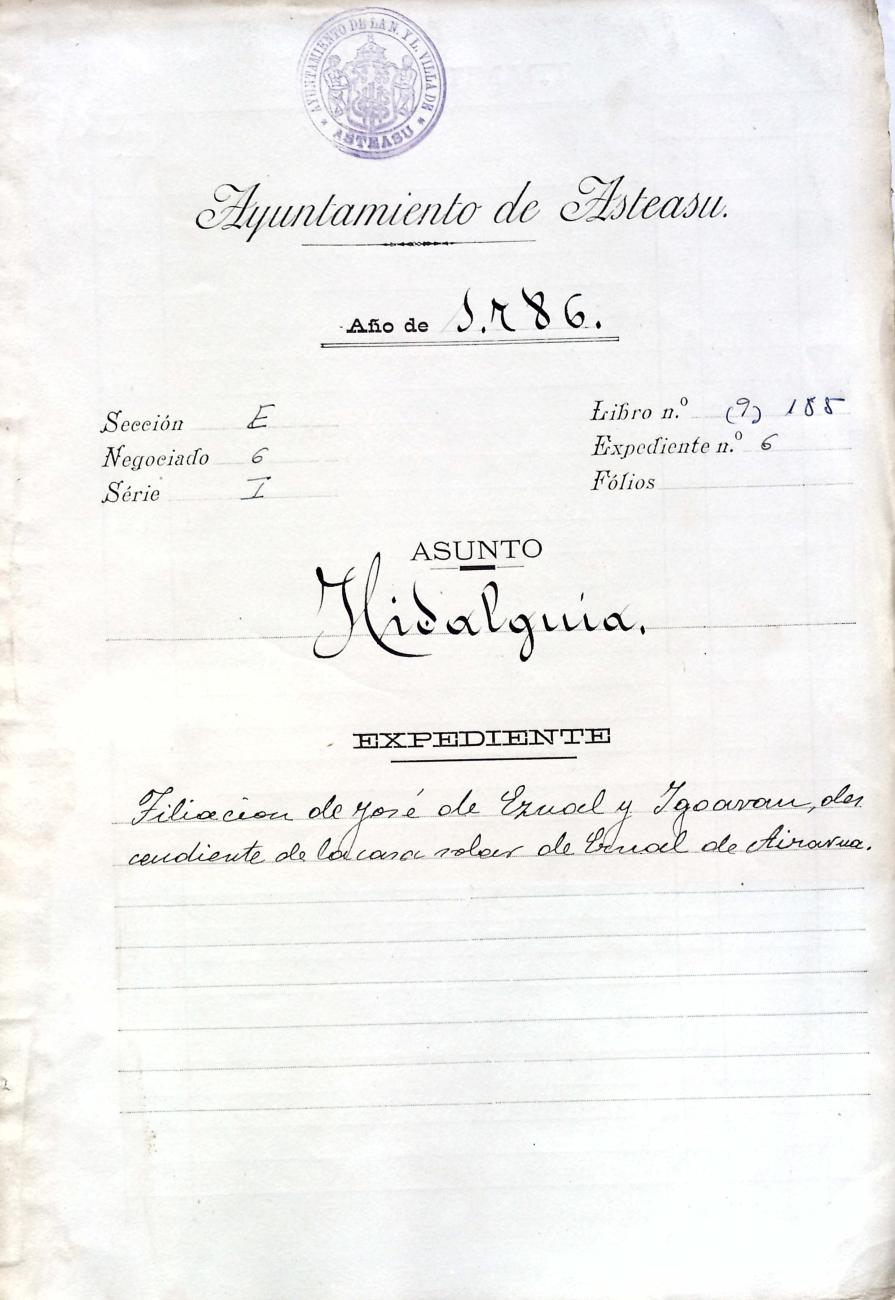 AYUNTAMIENTO DE LA N. Y L. VILLA DE
* ASTEASU *
Ayuntamiento de Asteasu.
Año de 1.786.
Sección E
Negociado 6
Série I
Libro n.º (9) 188
Expediente n.º 6
Fólios
ASUNTO
Hidalguía.
EXPEDIENTE
Filiación de José de Eznal y Igoaran, des
cendiente de la casa solar de Eznal de